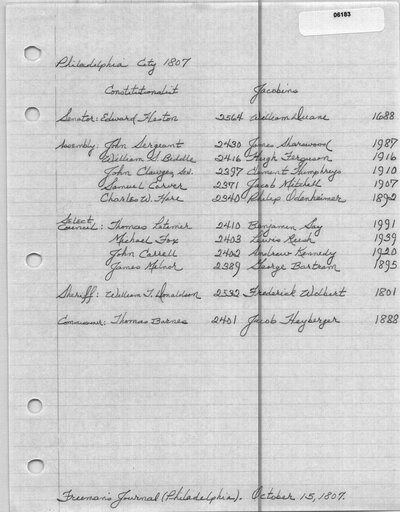 06183
Philadelphia City 1807
Constitutionalist Jacobins
Senator: Edward Heston 2564 William Duane 1688
Assembly: John Sergeant 2430 James Sharswood 1987
William S. Biddle 2416 Hugh Ferguson 1916
John Clawges, Sen. 2397 Clement Humphreys 1910
Samuel Carver 2371 Jacob Mitchell 1907
Charles W. Hare 2340 Philip Odenheimer 1892
Select
Council: Thomas Latimer 2410 Benjamin Say 1991
Michael Fox 2403 Lewis Rush 1939
John Carrell 2402 Andrew Kennedy 1920
James Milnor 2389 George Bartram 1895
Sheriff: William T. Donaldson 2532 Frederick Wolbert 1801
Commissioner: Thomas Barnes 2401 Jacob Heyberger 1888
Freeman's Journal (Philadelphia). October 15, 1807.